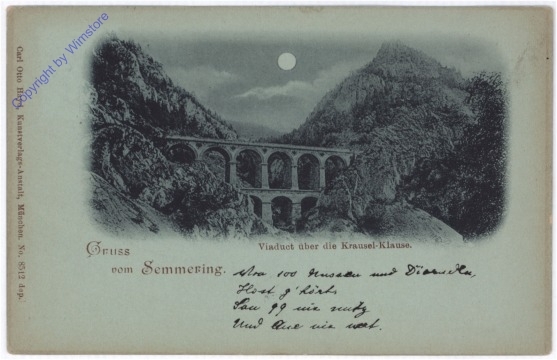 Copyright by Wimstore
Carl Otto Hayd, Kunstverlags-Anstalt, München. No. 8512 dep.
Viaduct über die Krausel-Klause.
Gruss
vom Semmering.
Von 100 und
Host g'hört
San 99 nix nutz
Und Ane nix wert.